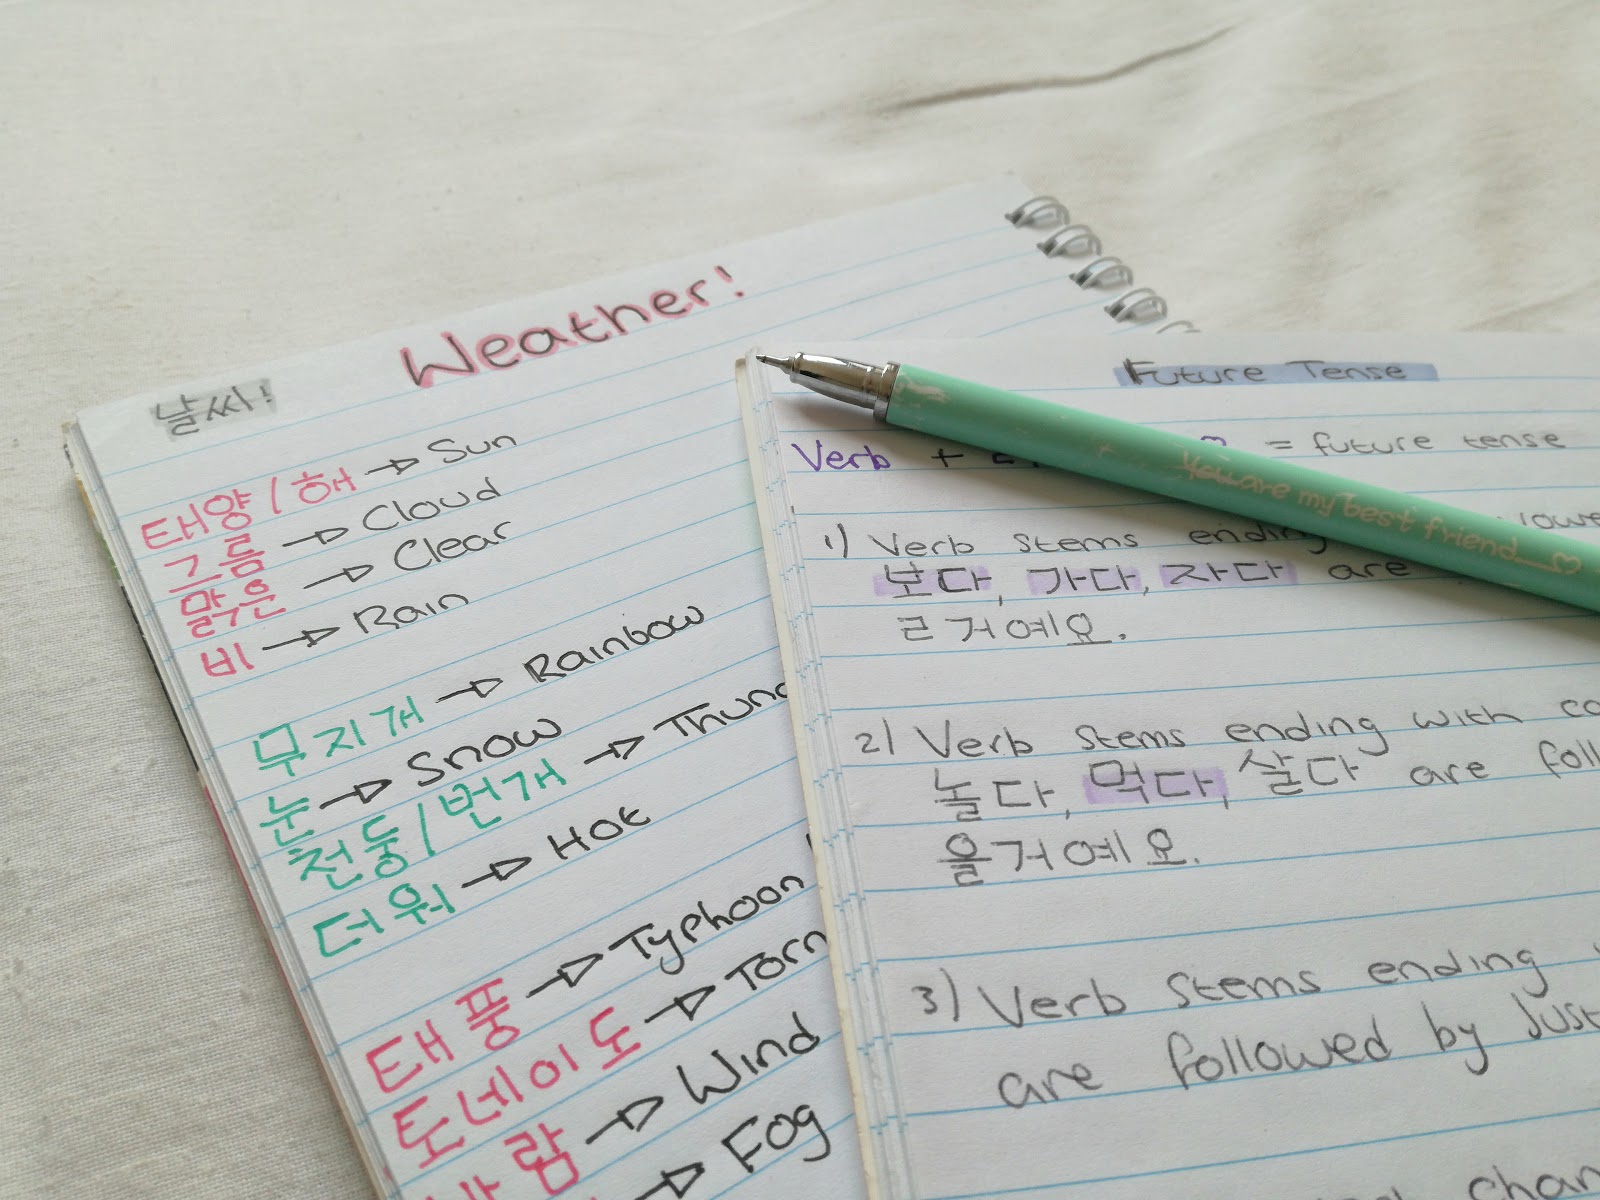 Weather!
날씨!
태양/해 → Sun
그름 → Cloud
맑운 → Clear
비 → Rain
무지개 → Rainbow
눈 → Snow
천둥/번개 → Thund
더워 → Hot
태풍 → Typhoon
토네이도 → Torn
람 → Wind
→ Fog
Future Tense
Verb + = future tense
1) Verb stems ending
보다, 가다, 자다 are
ㄹ거예요.
2) Verb stems ending with co
놀다, 먹다, 살다 are foll
을거예요.
3) Verb stems ending
are followed by just
chan
You are my best friend